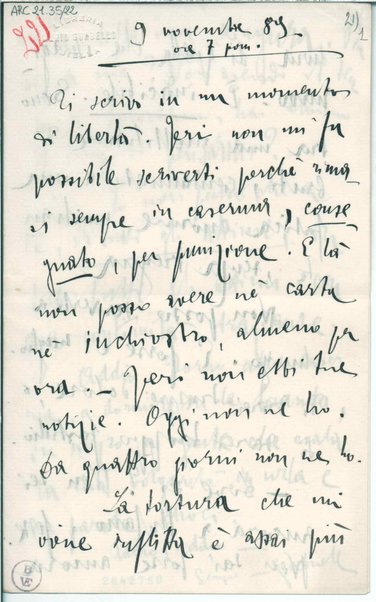 ARC 21.35/22
21) 1
9 novembre 89.
ore 7 pom.
Ti scrivo in un momento
di libertà. Jeri non mi fu
possibile scriverti perchè rima-
si sempre in caserma, conse-
gnato, per punizione. E là
non posso avere nè carta
nè inchiostro, almeno per
ora. – Jeri non ebbi tue
notizie. Oggi non ne ho.
Da quattro giorni non ne ho.
La tortura che mi
viene inflitta è assai più